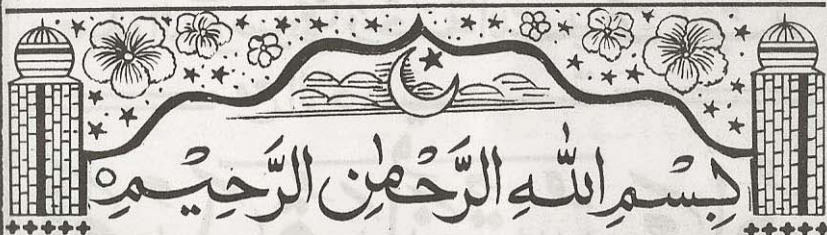 بِسْمِ اللّٰهِ الرَّحْمٰنِ الرَّحِيْمِ۝